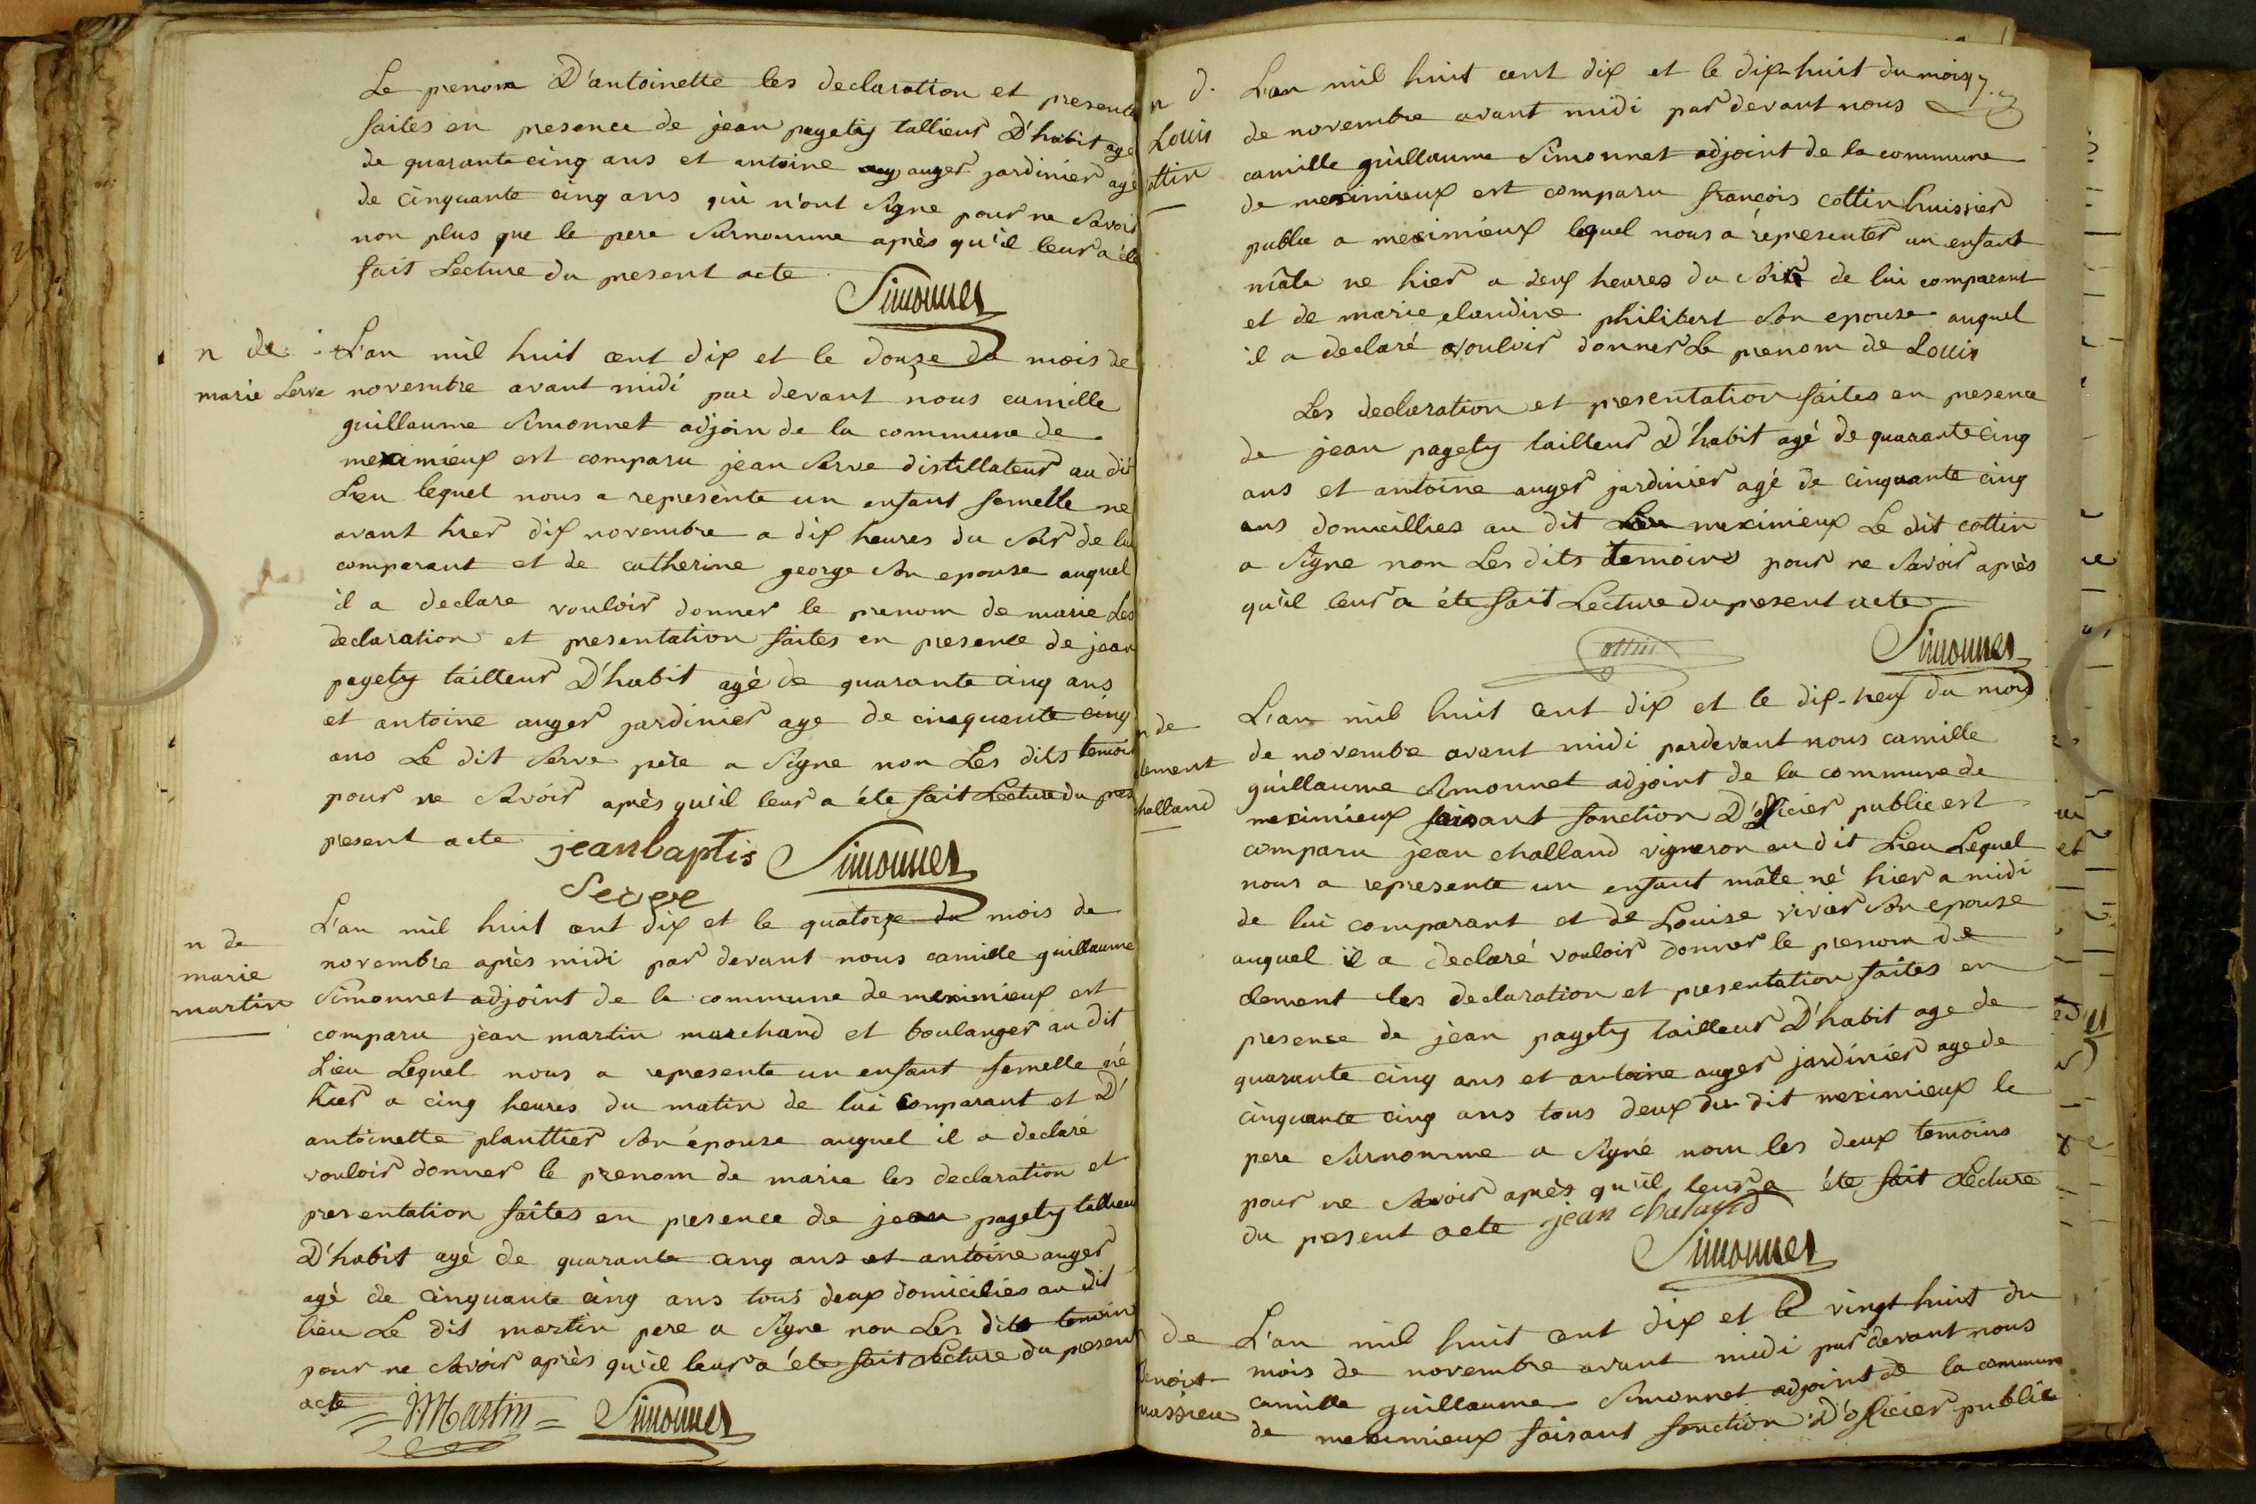 Le prenom D'antoinette les declaration et presente
faites en presence de jean pagety tallieur D'habit agé
de quarante cinq ans et antoine auger jardinier agé
de cinquante cinq ans qui n'ont Signe pour ne Savoir
non plus que le pere Surnomme après qu'il leur a éte
fait Lecture du present acte
Simonnet
n de
marie Serve
L'an mil huit cent dix et le douze du mois de
novembre avant midi par devant nous camille
guillaume Simonnet adjoin de la commune de
meximieux est comparu jean Serve distillateur au dit
Lieu lequel nous a represente un enfant femelle ne
avant hier dix novembre a dix heures du Soir de lui
comparant et de catherine george Son epouse auquel
il a declare vouloir donner le prenom de marie Les
declaration et presentation faites en presence de jean
pagety tailleur D'habit agé de quarante cinq ans
et antoine auger jardinier age de cinquante cinq
ans Le dit Serve père a Signe non Les dits temoin
pour ne Savoir après qu'il leur a éte fait Lecture du pres
present acte jeanbaptis Simonnet
Serve
n de
marie
martin
L'an mil huit cent dix et le quatorze du mois de
novembre après midi par devant nous camille guillaume
Simonnet adjoint de la commune de meximieux est
comparu jean martin marchand et boulanger au dit
Lieu Lequel nous a represente un enfant femelle né
hier a cinq heures du matin de lui comparant et D'
antoinette planttier Son épouse auquel il a declaré
vouloir donner le prenom de marie les declaration et
presentation faites en presence de jean pagety tallieur
D'habit agé de quarante cinq ans et antoine auger
agé de cinquante cinq ans tous deux domiciliés au dit
lieu Le dit martin pere a Signe non Les dits temoin
pour ne Savoir après qu'il leur a éte fait Lecture du present
acte
Martin Simonnet
n d.
Louis
ottin
L'an mil huit cent dix et le dix-huit du mois
de novembre avant midi par devant nous
camille guillaume Simonnet adjoint de la commune
de meximieux est comparu françois cottin huissier
public a meximieux lequel nous a représenter un enfant
mâle ne hier a deux heures du Soir de lui comparant
et de marie claudine philibert Son epouse auquel
il a declaré vouloir donner Le prenom de Louis
Les declaration et presentation faites en presence
de jean pagety tailleur D'habit agé de quarante cinq
ans et antoine auger jardinier agé de cinquante cinq
ans domicillies au dit Lieu meximieux Le dit cottin
a Signe non Les dits temoins pour ne Savoir après
qu'il leur a éte fait Lecture du present acte
Cottin Simonnet
n de
clement
challand
L'an mil huit cent dix et le dix-neuf du mois
de novembre avant midi pardevant nous camille
guillaume Simonnet adjoint de la commune de
meximieux faisant fonction D'officier public est
comparu jean challand vigneron au dit Lieu Lequel
nous a represente un enfant mâle né hier a midi
de lui comparant et de Louise vivier Son epouse
auquel il a declaré vouloir donner le prenom de
clement les declaration et presentation faites en
presence de jean pagety tailleur D'habit age de
quarante cinq ans et antoine auger jardinier age de
cinquante cinq ans tous deux du dit meximieux le
pere Surnomme a Signé nom les deux temoins
pour ne Savoir après qu'il leur a éte fait Lecture
du present acte jean chaland
Simonnet
de
benoit
massieu
L'an mil huit cent dix et le vingt huit du
mois de novembre avant midi par devant nous
camille guillaume Simonnet adjoint de la commune
de meximieux faisant fonction D'officier public